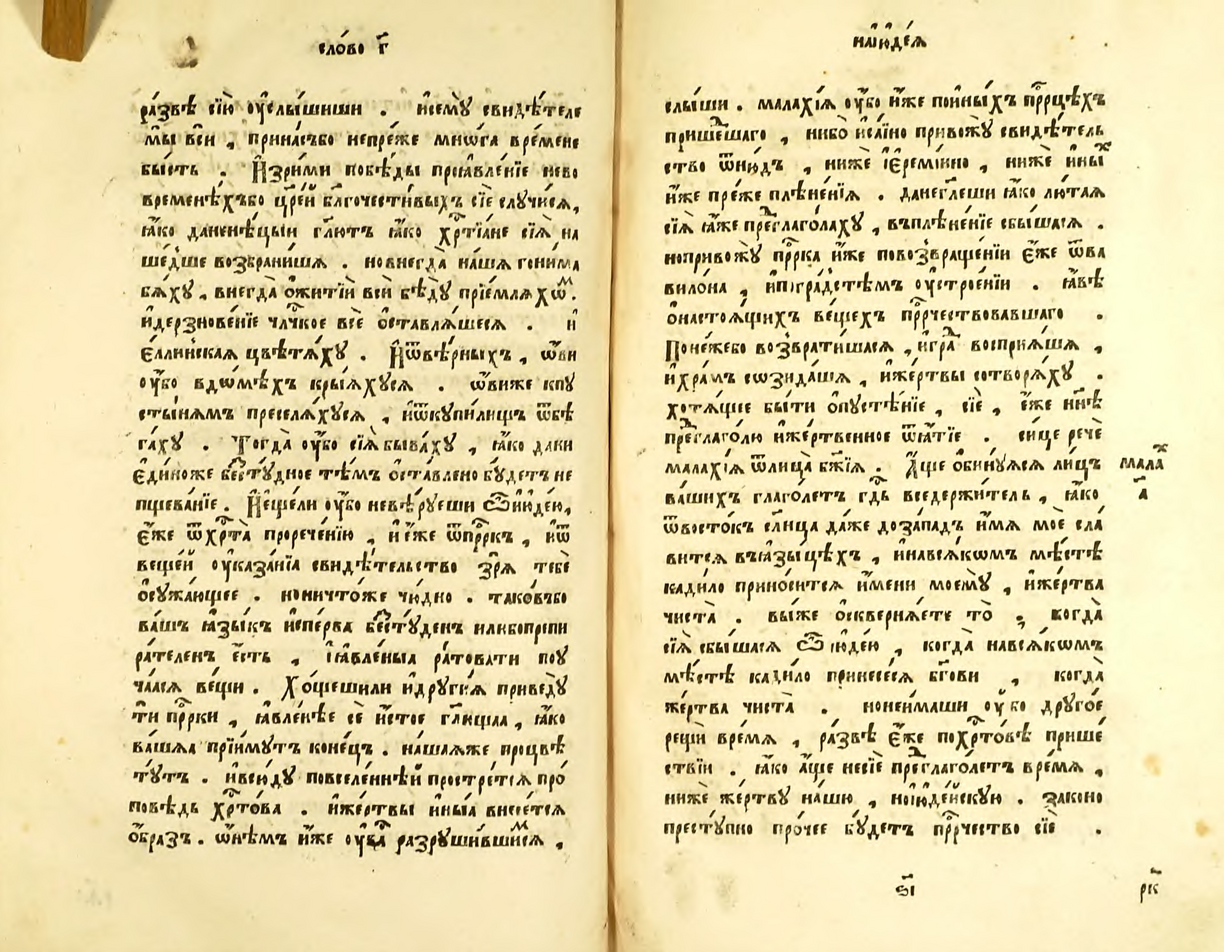 сло́во г҃
ра́звѣ сїю̀ ᲂу҆слы́шиши . и҆семꙋ̀ свидѣ́теле
мы̀ всѝ , прина́събо непре́же мнѡ́га вре́мене
бы́сть . И҆зри́ми побѣ́ды проꙗвле́нїе нево
временѣ́хъбо цр҃е́й бл҃гочести́выхъ сїѐ слꙋчи́сѧ,
ꙗ҆́ко даненѣ́цыи гл҃ютъ ꙗ҆́ко хрⷭ҇тїа́не сїѧ̀ на
ше́дше возбрани́шѧ . новнегда̀ на́шѧ гони́ма
бѧ́хꙋ , внегда̀ ѻ҆жи́тїи всѝ бѣ́дꙋ прїе́млѧхѡⷨ .
и҆дерзнове́нїе чл҃чкое всѐ ѻ҆ставлѧ́шесѧ . и҆
є҆́ллинскаѧ цвѣтѧ́хꙋ . И҆ѿвѣ́рныхъ , ѡ҆́ви
ᲂу҆́бо вдомѣ́хъ кры́ѧхꙋсѧ . ѡ҆ви́же кпꙋ
сты́нѧмъ преселѧ́хꙋсѧ , и҆ѿкꙋпи́лищъ ѿбѣ
га́хꙋ . Тогда̀ ᲂу҆́бо сїѧ̀ быва́хꙋ , ꙗ҆́ко да́ни
є҆ди́ноже бестꙋ́дное тѣ́мъ ѻ҆ста́влено бꙋ́детъ не
пщева́нїе . И҆ще́ли ᲂу҆́бо невѣ́рꙋеши ѽи҆ю҆де́ю,
є҆́же ѿхрⷭ҇та̀ прорече́нїю , и҆є҆́же ѿпррⷪ҇къ , и҆ѿ
веще́й ᲂу҆каза́нїа свидѣ́тельство зрѧ̀ тебѐ
ѻ҆сꙋжа́ющее . но ничто́же чю́дно . тако́въбо
ва́шъ ꙗ҆зы́къ и҆спе́рва бестꙋ́денъ и҆либопрпи
ра́теленъ є҆́сть , і҆ꙗвле́ныѧ ра́товати поꙋ
ча́лсѧ ве́щи . Хо́щешили и҆дрꙋгі́ѧ приведꙋ̀
ти прⷪ҇рки , ꙗ҆вле́нѣе сѐ и҆́стое гл҃ща́ѧ , ꙗ҆́ко
ва́шѧѧ прїи́мꙋтъ коне́цъ . на́шаѧже процвѣ
тꙋ́тъ . и҆всю́дꙋ повселе́ннѣй простре́тсѧ про́
повѣдь хрⷭ҇то́ва . и҆же́ртвы и҆ны́ѧ внесе́тсѧ
ѻ҆́бразъ . ѡ҆нѣ́мъ и҆́же ᲂу҆́бѡ разрꙋши́вшимсѧ ,
наі҆ю҆де́ѧ
слы́ши . мала́хїѧ ᲂу҆́бо и҆́же пои҆ны́хъ прⷪ҇рцѣхъ
прише́дшаго , ни́бо и҆са́їно привожꙋ̀ свидѣ́тель
ство ѿню́дъ , ни́же і҆ере́миино , ни́же и҆ны́ⷯ
и҆́же пре́же плѣне́нїѧ . данегл҃еши ꙗ҆́ко лю́таѧ
сїѧ̀ ꙗ҆́же преⷣглаго́лахꙋ , въплѣне́нїе сбы́шасѧ .
но привожꙋ̀ прⷪ҇рка и҆́же повозвраще́нїи є҆́же ѿва
вило́на , и҆поградстѣ́мъ ᲂу҆строе́нїи . ꙗ҆́вѣ
ѻ҆настоѧ́щихъ ве́щехъ прⷪ҇рчествовавшаго .
Поне́жебо возврати́шасѧ , и҆гра́ⷣ воспрїѧ́шѧ ,
и҆хра́мъ созида́шѧ , и҆же́ртвы сотворѧ́хꙋ .
хотѧ́щее бы́ти ѻ҆пꙋстѣ́нїе , сїѐ , є҆́же нн҃ѣ
преⷣглаго́лю и҆же́ртвенное ѿѧ́тїе . си́це речѐ
мала́хїѧ ѿлица̀ бж҃їѧ . А҆́ще ѻ҆бинꙋ́юсѧ ли́цъ
ва́шихъ глаго́летъ гдⷭ҇ь вседержи́тель , ꙗ҆́ко
ѿвосто́къ сл҃нца да́же доза́падъ и҆́мѧ моѐ сла́
витсѧ въꙗ҆зы́цѣхъ , и҆навсѧ́комъ мѣ́стѣ
кади́ло прино́ситсѧ и҆́мени моемꙋ̀ , и҆же́ртва
чиста̀ . вы́же ѻ҆сквернѧ́ете то̀ , когда̀
сїѧ̀ сбы́шасѧ ѽ і҆ю҆де́ю , когда̀ навсѧ́комъ
мѣ́стѣ кади́ло принесе́сѧ бг҃ови , когда̀
же́ртва чиста̀ . нонеи́маши ᲂу҆́бо дрꙋго́е
рещѝ вре́мѧ , ра́звѣ є҆́же похрⷭ҇то́вѣ прише́
ствїи . ꙗ҆́ко а҆́ще несїѐ преⷣглаго́летъ вре́мѧ ,
ни́же же́ртвꙋ на́шю , ної҆ю҆де́йскꙋю . законо
престꙋ́пно про́чее бꙋ́детъ прⷪ҇рчество сїѐ .
малаⷯ
а҃
ѕ҃і
рк҃